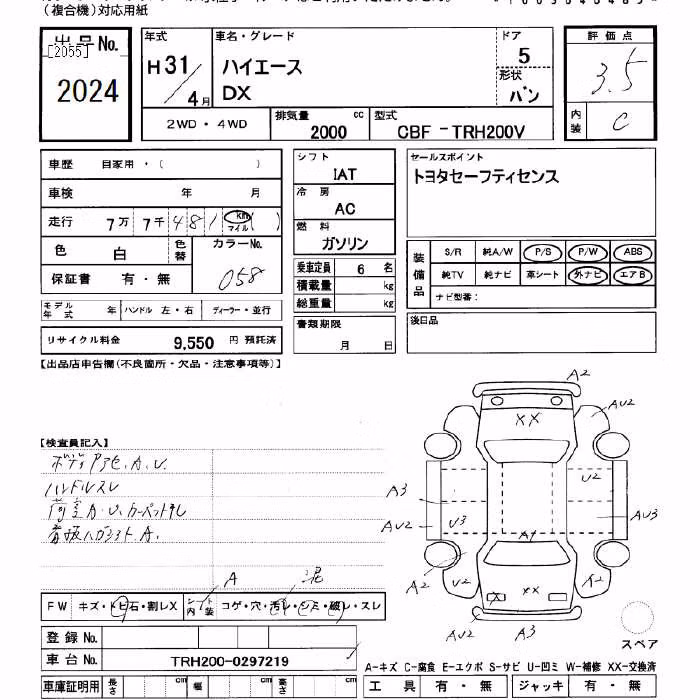 （複合機）対応用紙
出品No.
[2055]
2024
年式
H31／4月
車名・グレード
ハイエース
DX
ドア
5
形状
バン
評価点
3.5
内装
C
2WD・4WD
排気量 cc
2000
型式
CBF－TRH200V
車歴 自家用・（ ）
車検 年 月
走行 7万 7千 481 km マイル ( )
色 白 色替 カラーNo. 058
保証書 有・無
モデル年式 年 ハンドル 左・右 ディーラー・並行
リサイクル料金 9,550 円 預託済
シフト
IAT
冷房
AC
燃料
ガソリン
乗車定員 6 名
積載量 kg
総重量 kg
書類期限
月 日
セールスポイント
トヨタセーフティセンス
装備品
S/R 純A/W P/S P/W ABS
純TV 純ナビ 革シート 外ナビ エアB
ナビ型番：
後日品
【出品店申告欄（不良箇所・欠品・注意事項等）】
【検査員記入】
ボディアセ、A、U、
ハンドルスレ
荷室A・U、カーペットヨレ
看板ハガシアトA、
A2
AU2
XX
A3
U2
AU2
U3
AU3
A1
A2
U2
X
XX
A2
AU2
A3
スペア
A
泥
FW キズ・トビ石・割レX シート内装 コゲ・穴・汚レ・シミ・破レ・スレ
登録No.
車台No. TRH200-0297219
車庫証明用 長さ cm 幅 cm 高さ cm
A-キズ C-腐食 E-エクボ S-サビ U-凹ミ W-補修 XX-交換済
工具 有・無 ジャッキ 有・無